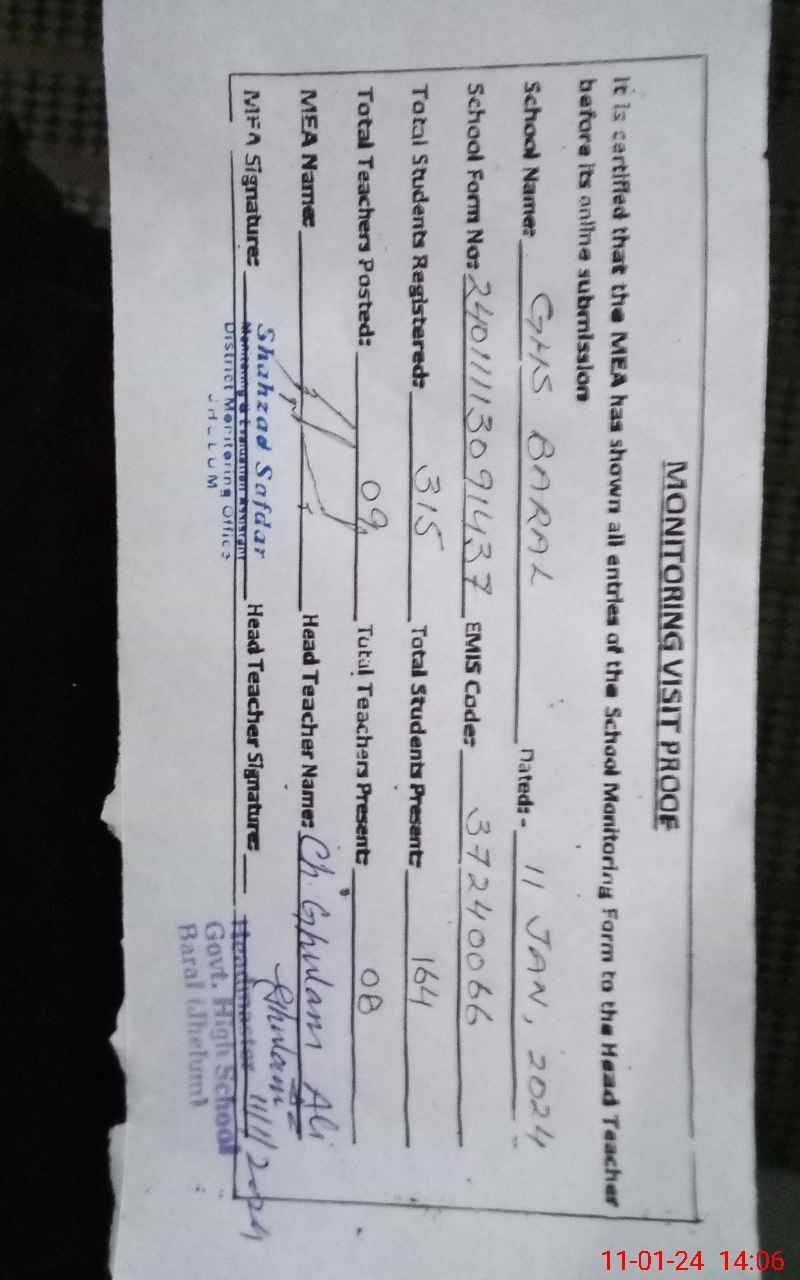 MONITORING VISIT PROOF
It is certified that the MEA has shown all entries of the School Monitoring Form to the Head Teacher
before its online submission
School Name: GHS BARAL Dated:- 11 JAN, 2024
School Form No: 24011113091437 EMIS Code: 37240066
Total Students Registered: 315 Total Students Present: 164
Total Teachers Posted: 09 Total Teachers Present: 08
MEA Name: Head Teacher Name: Ch. Ghulam Ali
MEA Signature: Head Teacher Signature: Ghulam 11/1/2024
Shahzad Safdar
Monitoring & Evaluation Assistant
District Monitoring Office
JHELUM
Headmaster
Govt. High School
Baral (Jhelum)
11-01-24 14:06